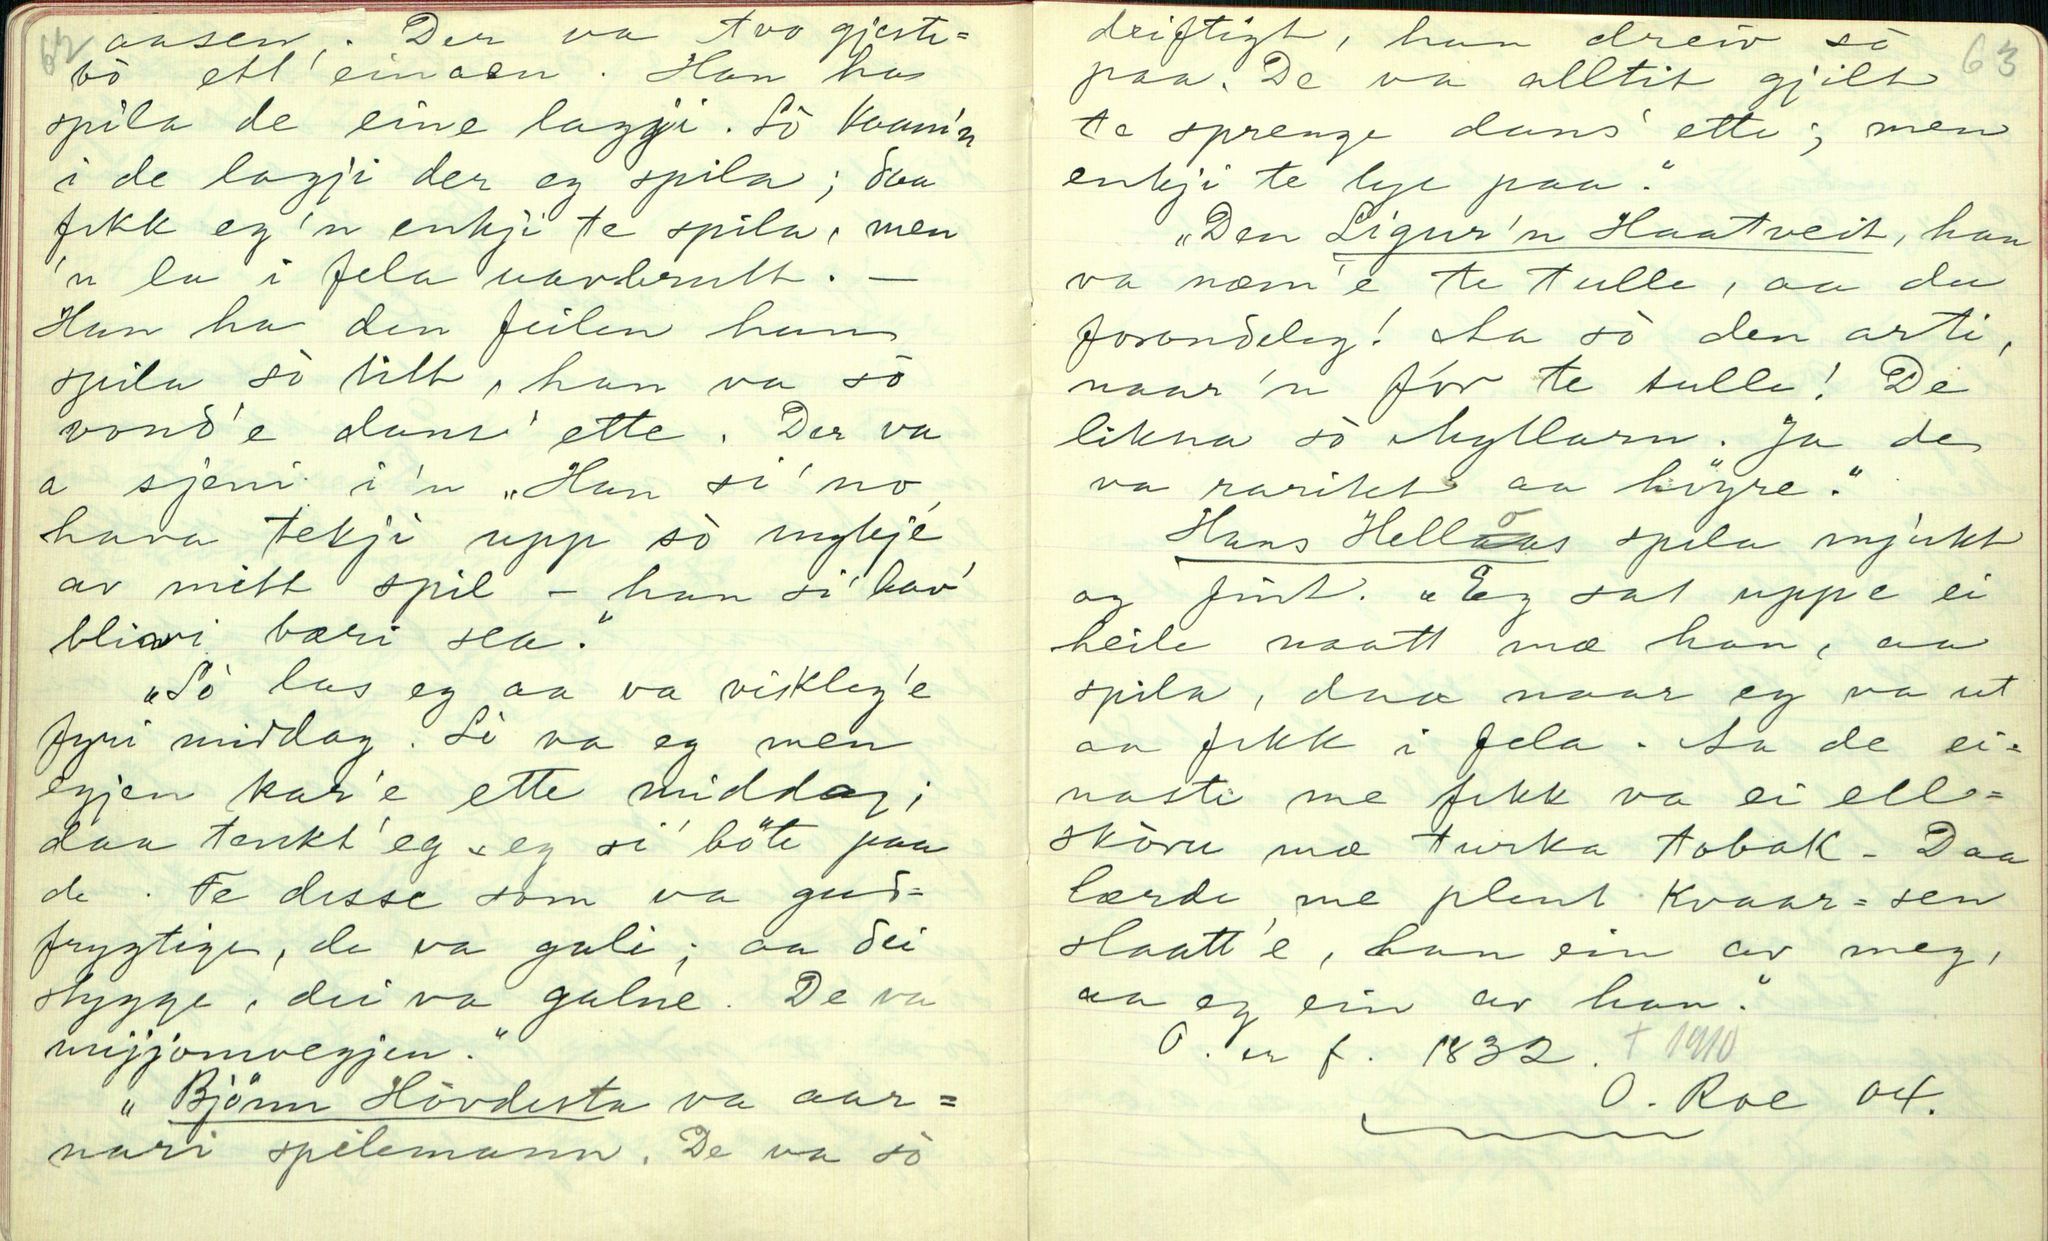 62
aasen. Der va tvo gjeste=
bò ett' einaen. Han ha
spila de eine lagji. Sò kaam'n
i de lagji der eg spila; daa
fekk eg'n enkji te spila, men
'n la i fela uavbrutt. —
Han ha den feilen han
spila sò litt, han va sò
vond'e dans' ette. Der va
a sjeni i'n „Han si' no
hava tekji upp sò mykje
av mitt spil – han si' hav'
blivi bæri sea."
„Sò las eg aa va viskleg'e
fyri middag. Sò va eg men
egjen kar'e ette middag;
daa tenkt' eg eg si' böte paa
de. Te disse som va gud=
frygtige, de va gali; aa dei
stygge, dei va galne. De va
mijjomvegjen."
„Bjönn Hövdesta va aar=
nari spelemann. De va sò
63
driftigt, han dreiv sò
paa. De va alltit gjilt
te sprenge dans' ette; men
enkji te lye paa."
„Den Sigur'n Haatveit, han
va næm'e te tulle, aa du
forondeleg! Aa sò den arti,
naar'n fór te tulle! De
likna sò Myllarn. Ja de
va rarikt aa höyre."
Hans Hellos spela mjukt
og fint. „Eg sat uppe ei
heile naatt mæ han, aa
spila, daa naar eg va ut
aa fekk i fela. Aa de ei=
naste me fekk va ei ell=
skòru mæ turka tobak. Daa
lærde me plent kvaar=sen
slaatt'e, han ein av meg,
aa eg ein av han."
O. er f. 1832. † 1910
O. Roe 04.